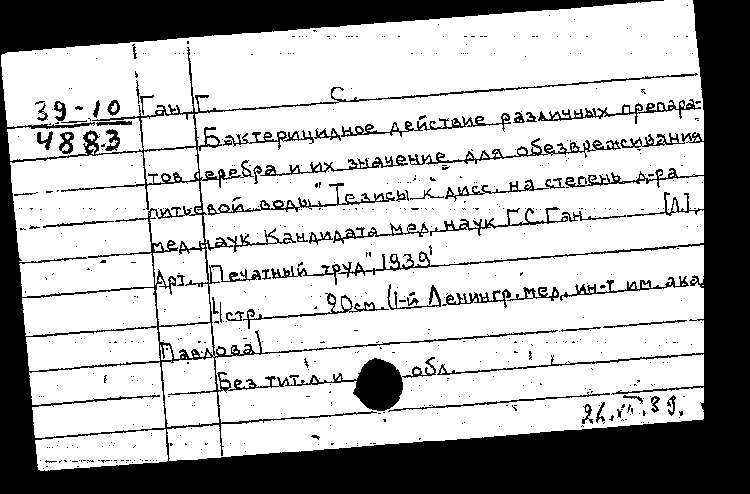 39-10
4883
Ган, Г. С.
Бактерицидное действие различных препара-
тов серебра и их значение для обезвреживания
питьевой воды". Тезисы к дисс. на степень д-ра
мед. наук. Кандидата мед. наук Г.С. Ган. [Л.],
Арт. "Печатный труд", 1939
4 стр. 20см. (1-й Ленингр. мед. ин-т им. ака
Павлова)
Без тит. л. и обл.